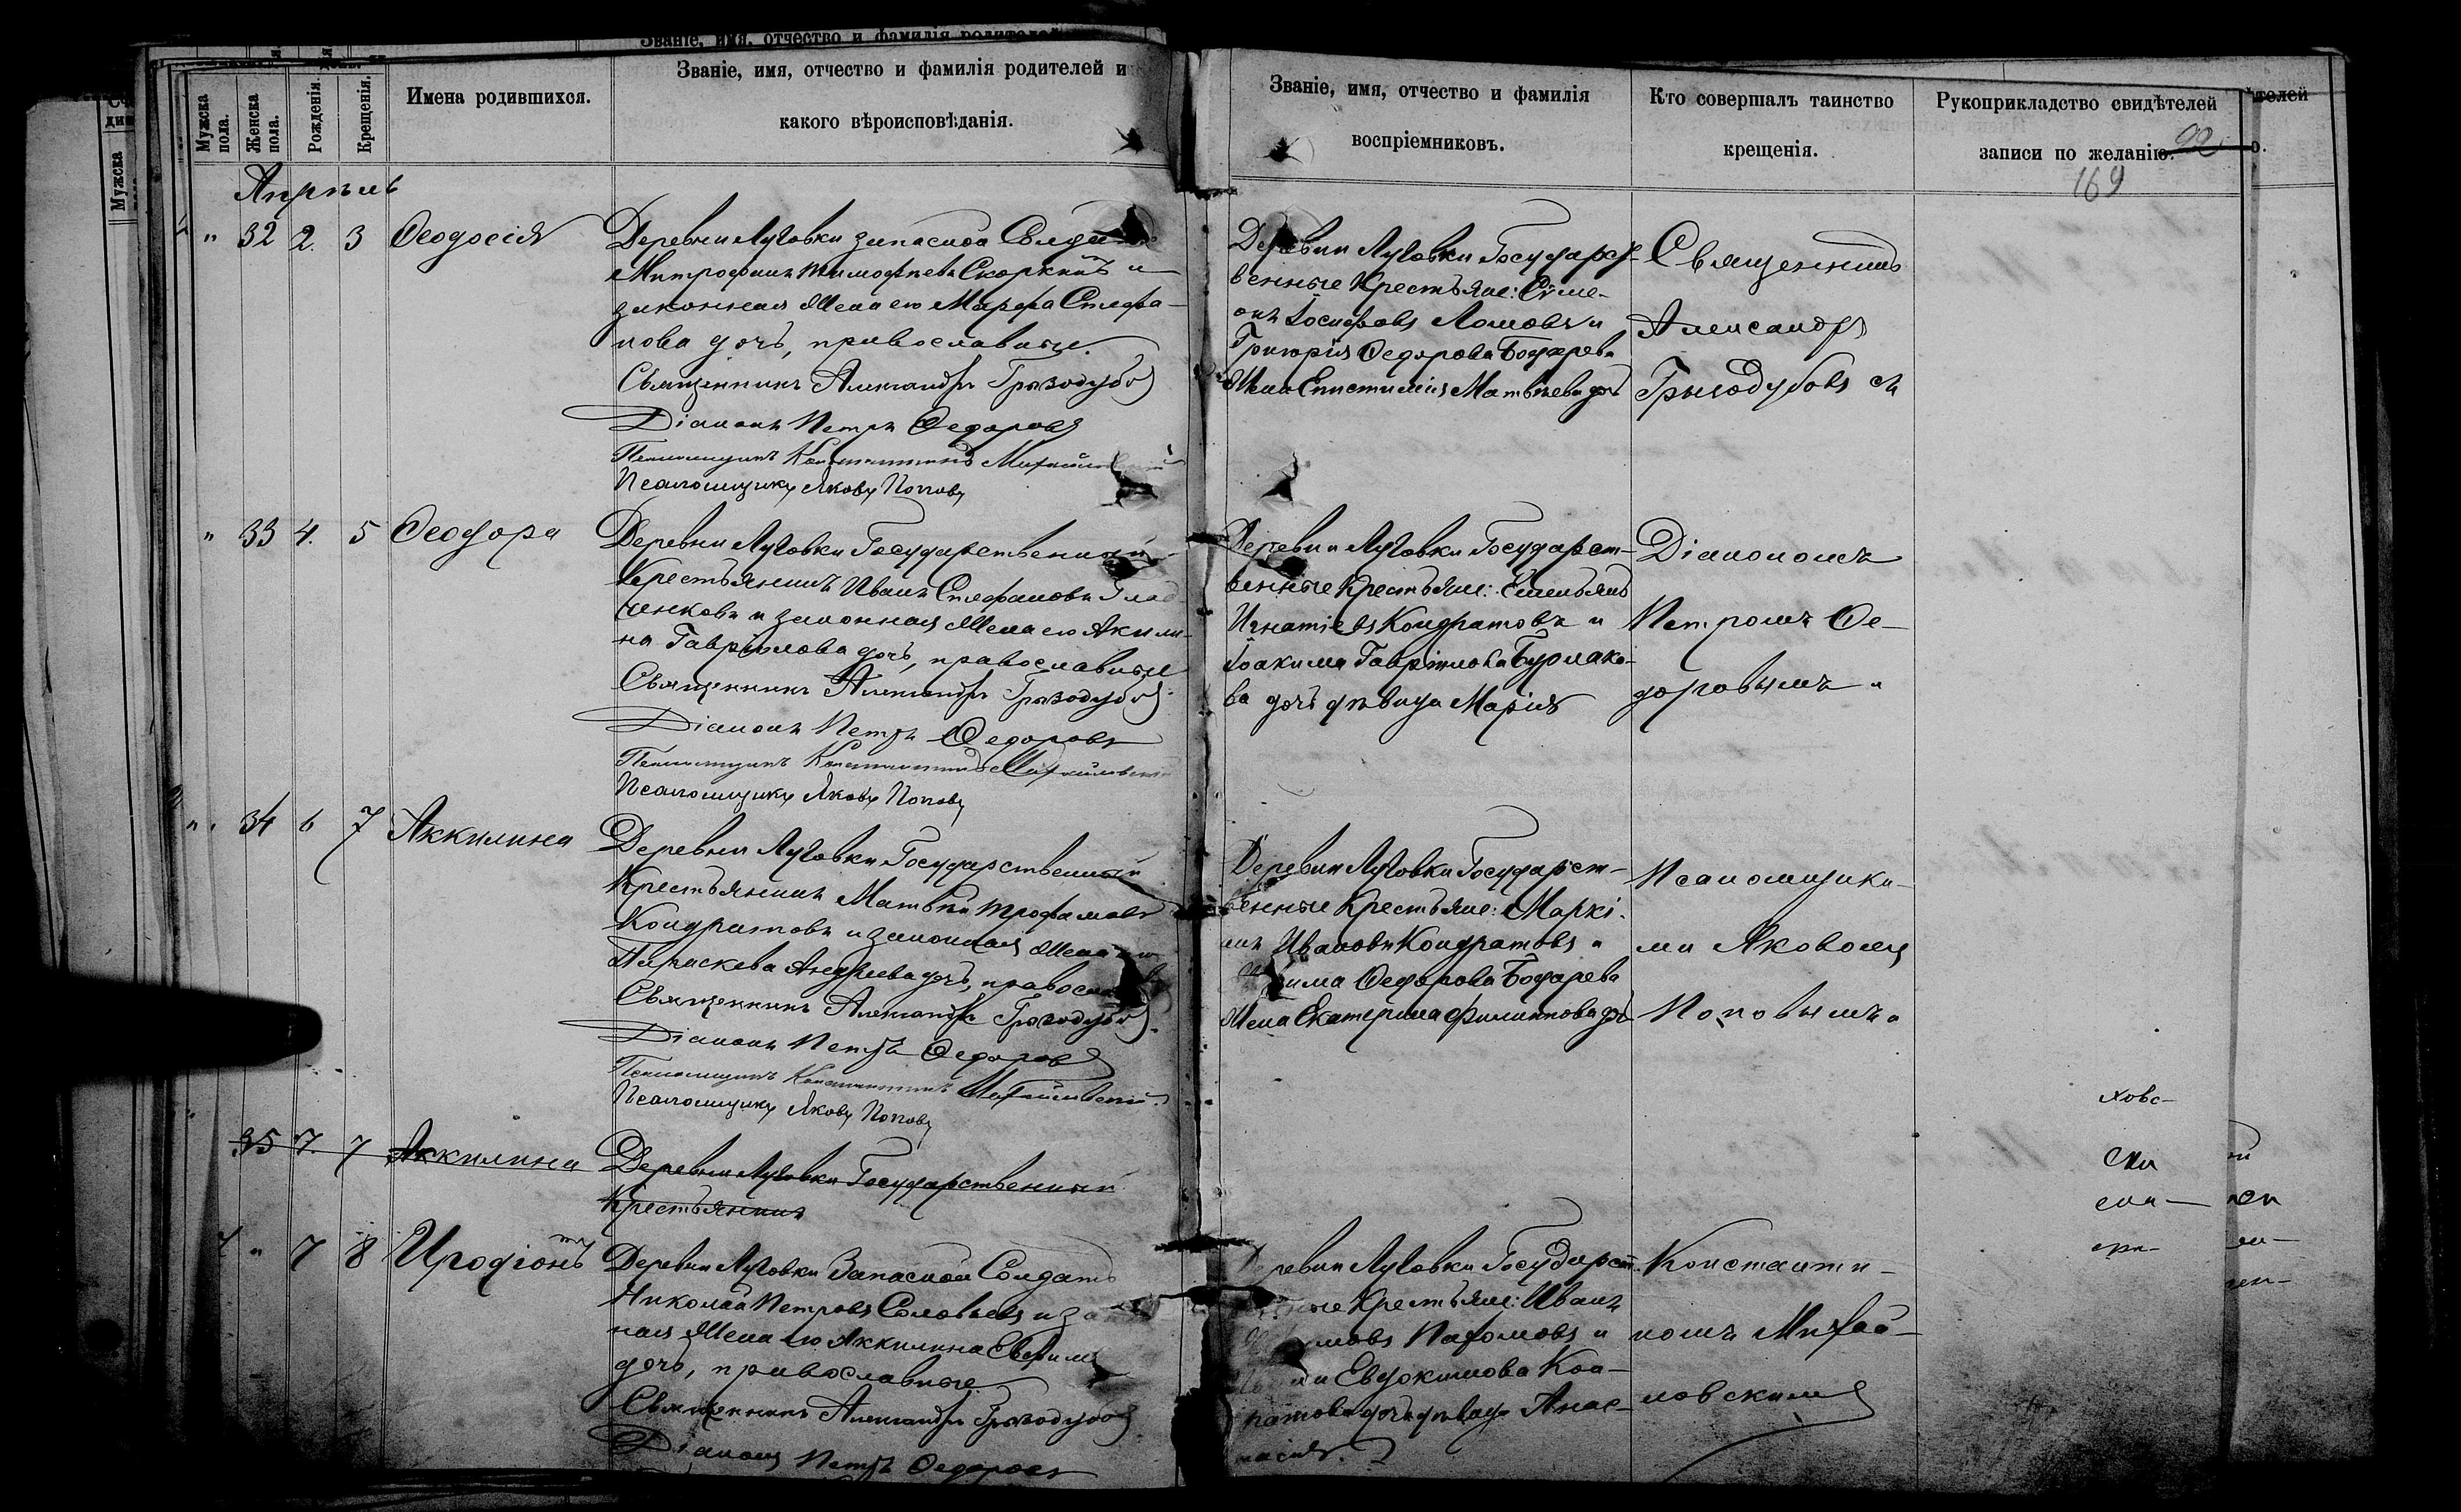 Званіе, имя, отчество и фамилія родителей
Мужска пола.
Женска пола.
Рожденія.
Крещенія.
Имена родившихся.
Званіе, имя, отчество и фамилія родителей и
какого вѣроисповѣданія.
Званіе, имя, отчество и фамилія
воспріемниковъ.
Кто совершалъ таинство
крещенія.
Рукоприкладство свидѣтелей
записи по желанію.
92
169
Мужска
Апрѣль
" 32 2. 3 Ѳеодосія
Деревни Луговки запасной
Митрофанъ Тимофѣевъ Скоркинъ и
законная жена его Марфа Стефа-
нова дочь, православные.
Священникъ Александръ
Діаконъ Петръ Ѳедоровъ
Псаломщикъ Константинъ
Псаломщикъ Яковъ Поповъ
Деревни Луговки Государст-
венные Крестьяне: Сѵме-
онъ Іосифовъ Ломовъ и
Григорія Ѳедорова Бочарева
жена Епистимія Матвѣева дочь
Священникъ
Александръ
" 33 4. 5 Ѳеодора
Деревни Луговки Государственный
Крестьянинъ Иванъ Стефановъ
ченковъ и законная жена его Акили-
на Гавріилова дочь, православные
Священникъ Александръ
Діаконъ Петръ Ѳедоровъ
Псаломщикъ Константинъ
Псаломщикъ Яковъ Поповъ
Деревни Луговки Государст-
венные Крестьяне: Емельянъ
Игнатіевъ Кондратовъ и
Іоакима Гавріилова Бурлако-
ва дочь дѣвица Марія
Діакономъ
Петромъ Ѳе-
доровымъ
" 34 6 7 Аккилина
Деревни Луговки Государственный
Крестьянинъ Матвѣй Трофимовъ
Кондратовъ и законная жена его
Параскева Андреева дочь,
Священникъ Александръ
Діаконъ Петръ Ѳедоровъ
Псаломщикъ Константинъ Михайловскій
Псаломщикъ Яковъ Поповъ
Деревни Луговки Государст-
венные Крестьяне: Маркі-
анъ Ивановъ Кондратовъ и
Ѳедорова Бочарева
жена Екатерина Филиппова дочь
Псаломщика-
ми Яковомъ
Поповымъ
35 7. 7 Аккилина
Деревни Луговки Государственный
Крестьянинъ
" 7 8 Иродіонъ
Деревни Луговки Запасной Солдатъ
Николай Петровъ Соловьевъ и
ная жена его Аккилина
дочь, православные
Священникъ Александръ
Діаконъ Петръ Ѳедоровъ
Деревни Луговки Государст-
Крестьяне: Иванъ
Пахомовъ и
Евдокимова Кон-
ратова дочь дѣвица Анас-
тасія.
Константи-
номъ Михай-
ловскимъ